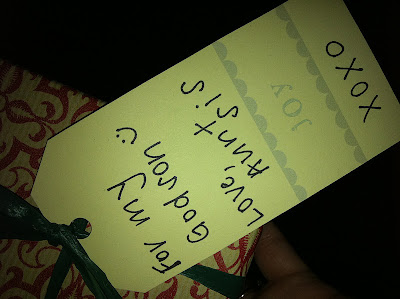 For my
Godson ☺
Love,
Aunt Sis
Joy
XOXO